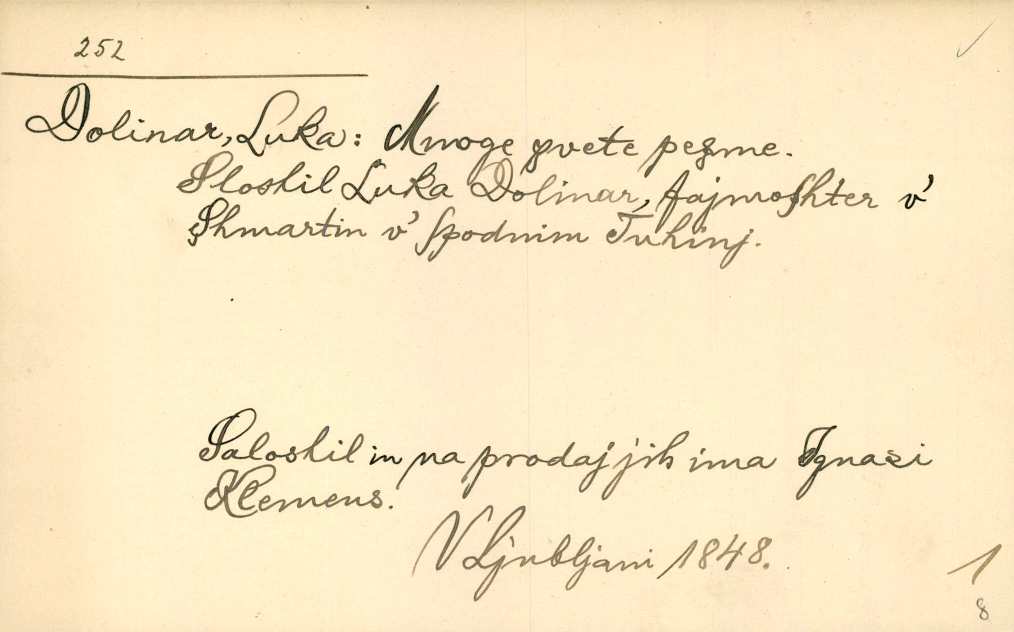 252
Dolinar, Luka: Mnoge svete pesme.
Sloshil Luka Dolinar, fajmoshter v'
Shmartin v' spodnim Tuhinj.
Saloshil in na prodaj jih ima Ignazi
Klemens.
V Ljubljani 1848.
1
8